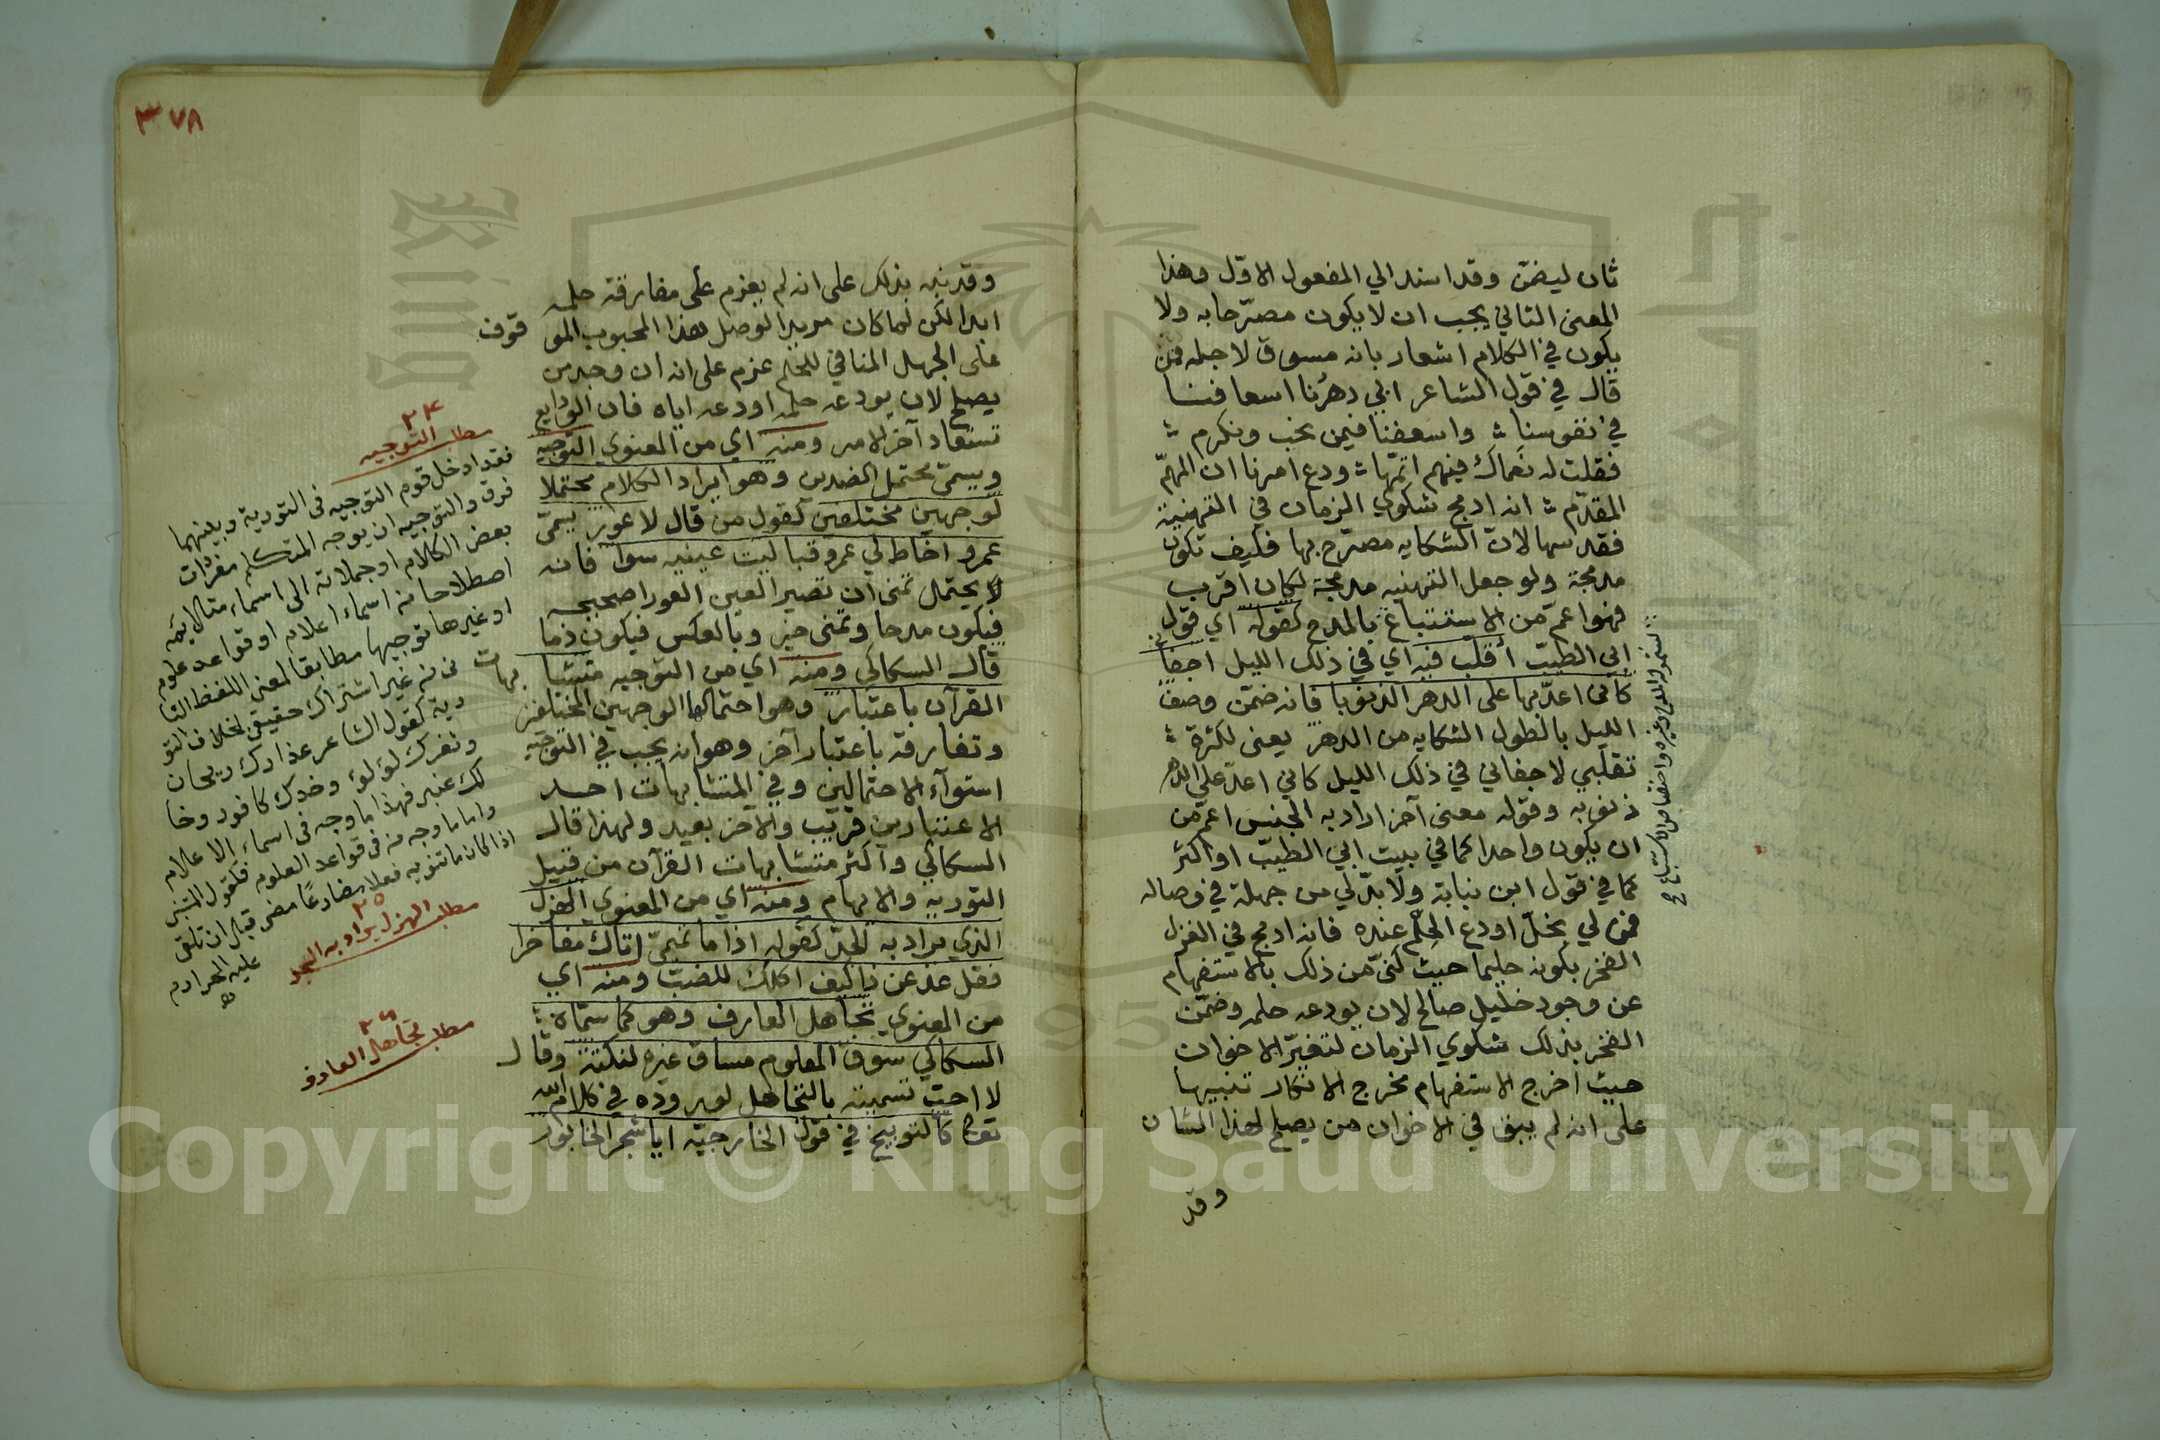 ثان ليضمن وقد اسند الي المفعول الاوّل وهذا
المعنى الثاني يجب ان لا يكون مصرّحا به ولا
يكون في الكلام اشعار بانه مسوق لاجله فمن
قال في قول الشاعر ابي دهرُنا اسعافنا
في نفوسنا واسعفنا فيمن نحب ونكرم
فقلت له نعماك فيهم اتمّها ودع امرنا ان المهمّ
المقدّم انه ادمج شكوي الزمان في التهنية
فقد سها لانّ الشكايه مصرّح بها فكيف تكون
مدمجة ولو جعل التهنيه مدمجة لكان اقرب
فهو اعمّ من الاستتباع بالمدح كقوله اي قول
ابي الطيّب أقلب فيه اي في ذلك الليل اجفاني
كاني اعدّ بها على الدهر الذنوبا فانه ضمّن وصف
الليل بالطول الشكايه من الدهر يعنى لكثرة
تقلبي لاجفاني في ذلك الليل كاني اعدّ على الدهر
ذنوبه وقوله معنى آخر اراد به الجنس اعمّ من
ان يكون واحدا كما في بيت ابي الطيّب او اكثر
كما في قول ابن نباتة ولا بدّ لي من جهلة في وصاله
فمن لي بخلّ اودع الحِلْم عنده فانه ادمج في الغزل
الفخر بكونه حليما حيث كنىّ من ذلك بالاستفهام
عن وجود خليل صالح لان يودعه حلمه وضمّن
الفخر بذلك شكوي الزمان لتغيّر الاخوان
حيث اخرج الاستفهام مخرج الانكار تنبيها
على انه لم يبق في الاخوان من يصلح لهذا الشان
وقد
لشموله المدح وغيره واختصاص الاستتباع
٣٧٨
وقد نبه بذلك على انه لم يعزم على مفارقة حلمه
ابدا لكن لما كان مريدا لوصل هذا المحبوب الموقوف
على الجهل المنافي للحلم عزم على انه ان وجد من
يصلح لان يودعه حلمه اودعه اياه فان الودايع
تستعاد آخر الامر ومنه اي من المعنوي التوجيه
ويسمىّ محتمل الضدين وهو ايراد الكلام محتملا
لوجهين مختلفين كقول من قال لاعور يسمّى
عمرو خاط لي عمرو قبا ليت عينيه سوآ فانه
لا يحتمل تمنى ان تصير العين العورا صحيحه
فيكون مدحا وتمنى خير وبالعكس فيكون ذما
قال السكاكي ومنه اي من التوجيه متشابهات
القرآن باعتبار وهو احتمالها الوجهين المختلفين
وتفارقه باعتبار آخر وهو انه يجب في التوجيه
استوآء الاحتمالين وفي المتشابهات احد
الاعتبارين قريب والآخر بعيد ولهذا قال
السكاكي واكثر متشابهات القرآن من قبيل
التوريه والايهام ومنه اي من المعنوي الهزل
الذي يراد به الجدّ كقوله اذا ما تميميّ اتاك مفاخرا
فقل عد عن ذا كيف اكلك للضبّ ومنه اي
من المعنوي تجاهل العارف وهو كما سمّاه
السكاكي سوق المعلوم مساق غيره لنكتة وقال
لا احب تسميته بالتجاهل لوروده في كلام الله
تعالى كالتوبيخ في قول الخارجيّه ايا شجر الخابور
مطلب التوجيه
٢٤
فقد ادخل قوم التوجيه في التورية وبينهما
فرق والتوجيه ان يوجه المتكلم مفردات
بعض الكلام او جملاته الى اسماء متلائمة
اصطلاحا من اسماء اعلام او قواعد علوم
او غيرها توجيها مطابقا لمعنى اللفظ الثا
نى من غير اشتراك حقيقي بخلاف التو
رية كقول الشاعر عذارك ريحان
وثغرك لؤلؤ وخدك كافور وخا
لك عنبر فهذا ما وجه في اسماء الاعلام
واما ما وجه منه في قواعد العلوم فكقول المتنبي
اذا كان ما تنويه فعلا مضارعًا مضى قبل ان تلقى
عليه الجوازم
مطلب الهزل يراد به الجد
٢٥
مطلب تجاهل العارف
٢٦
Copyright © King Saud University